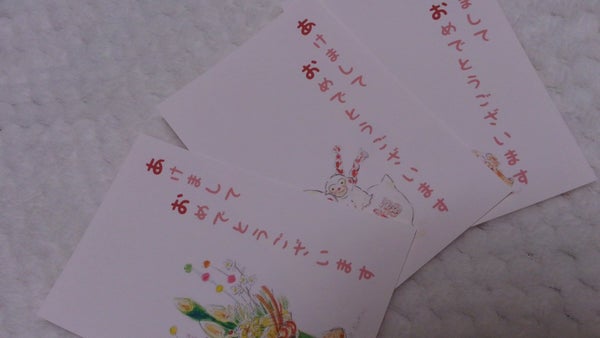 あけまして
おめでとうございます
あけまして
おめでとうございます
けまして
おめでとうございます